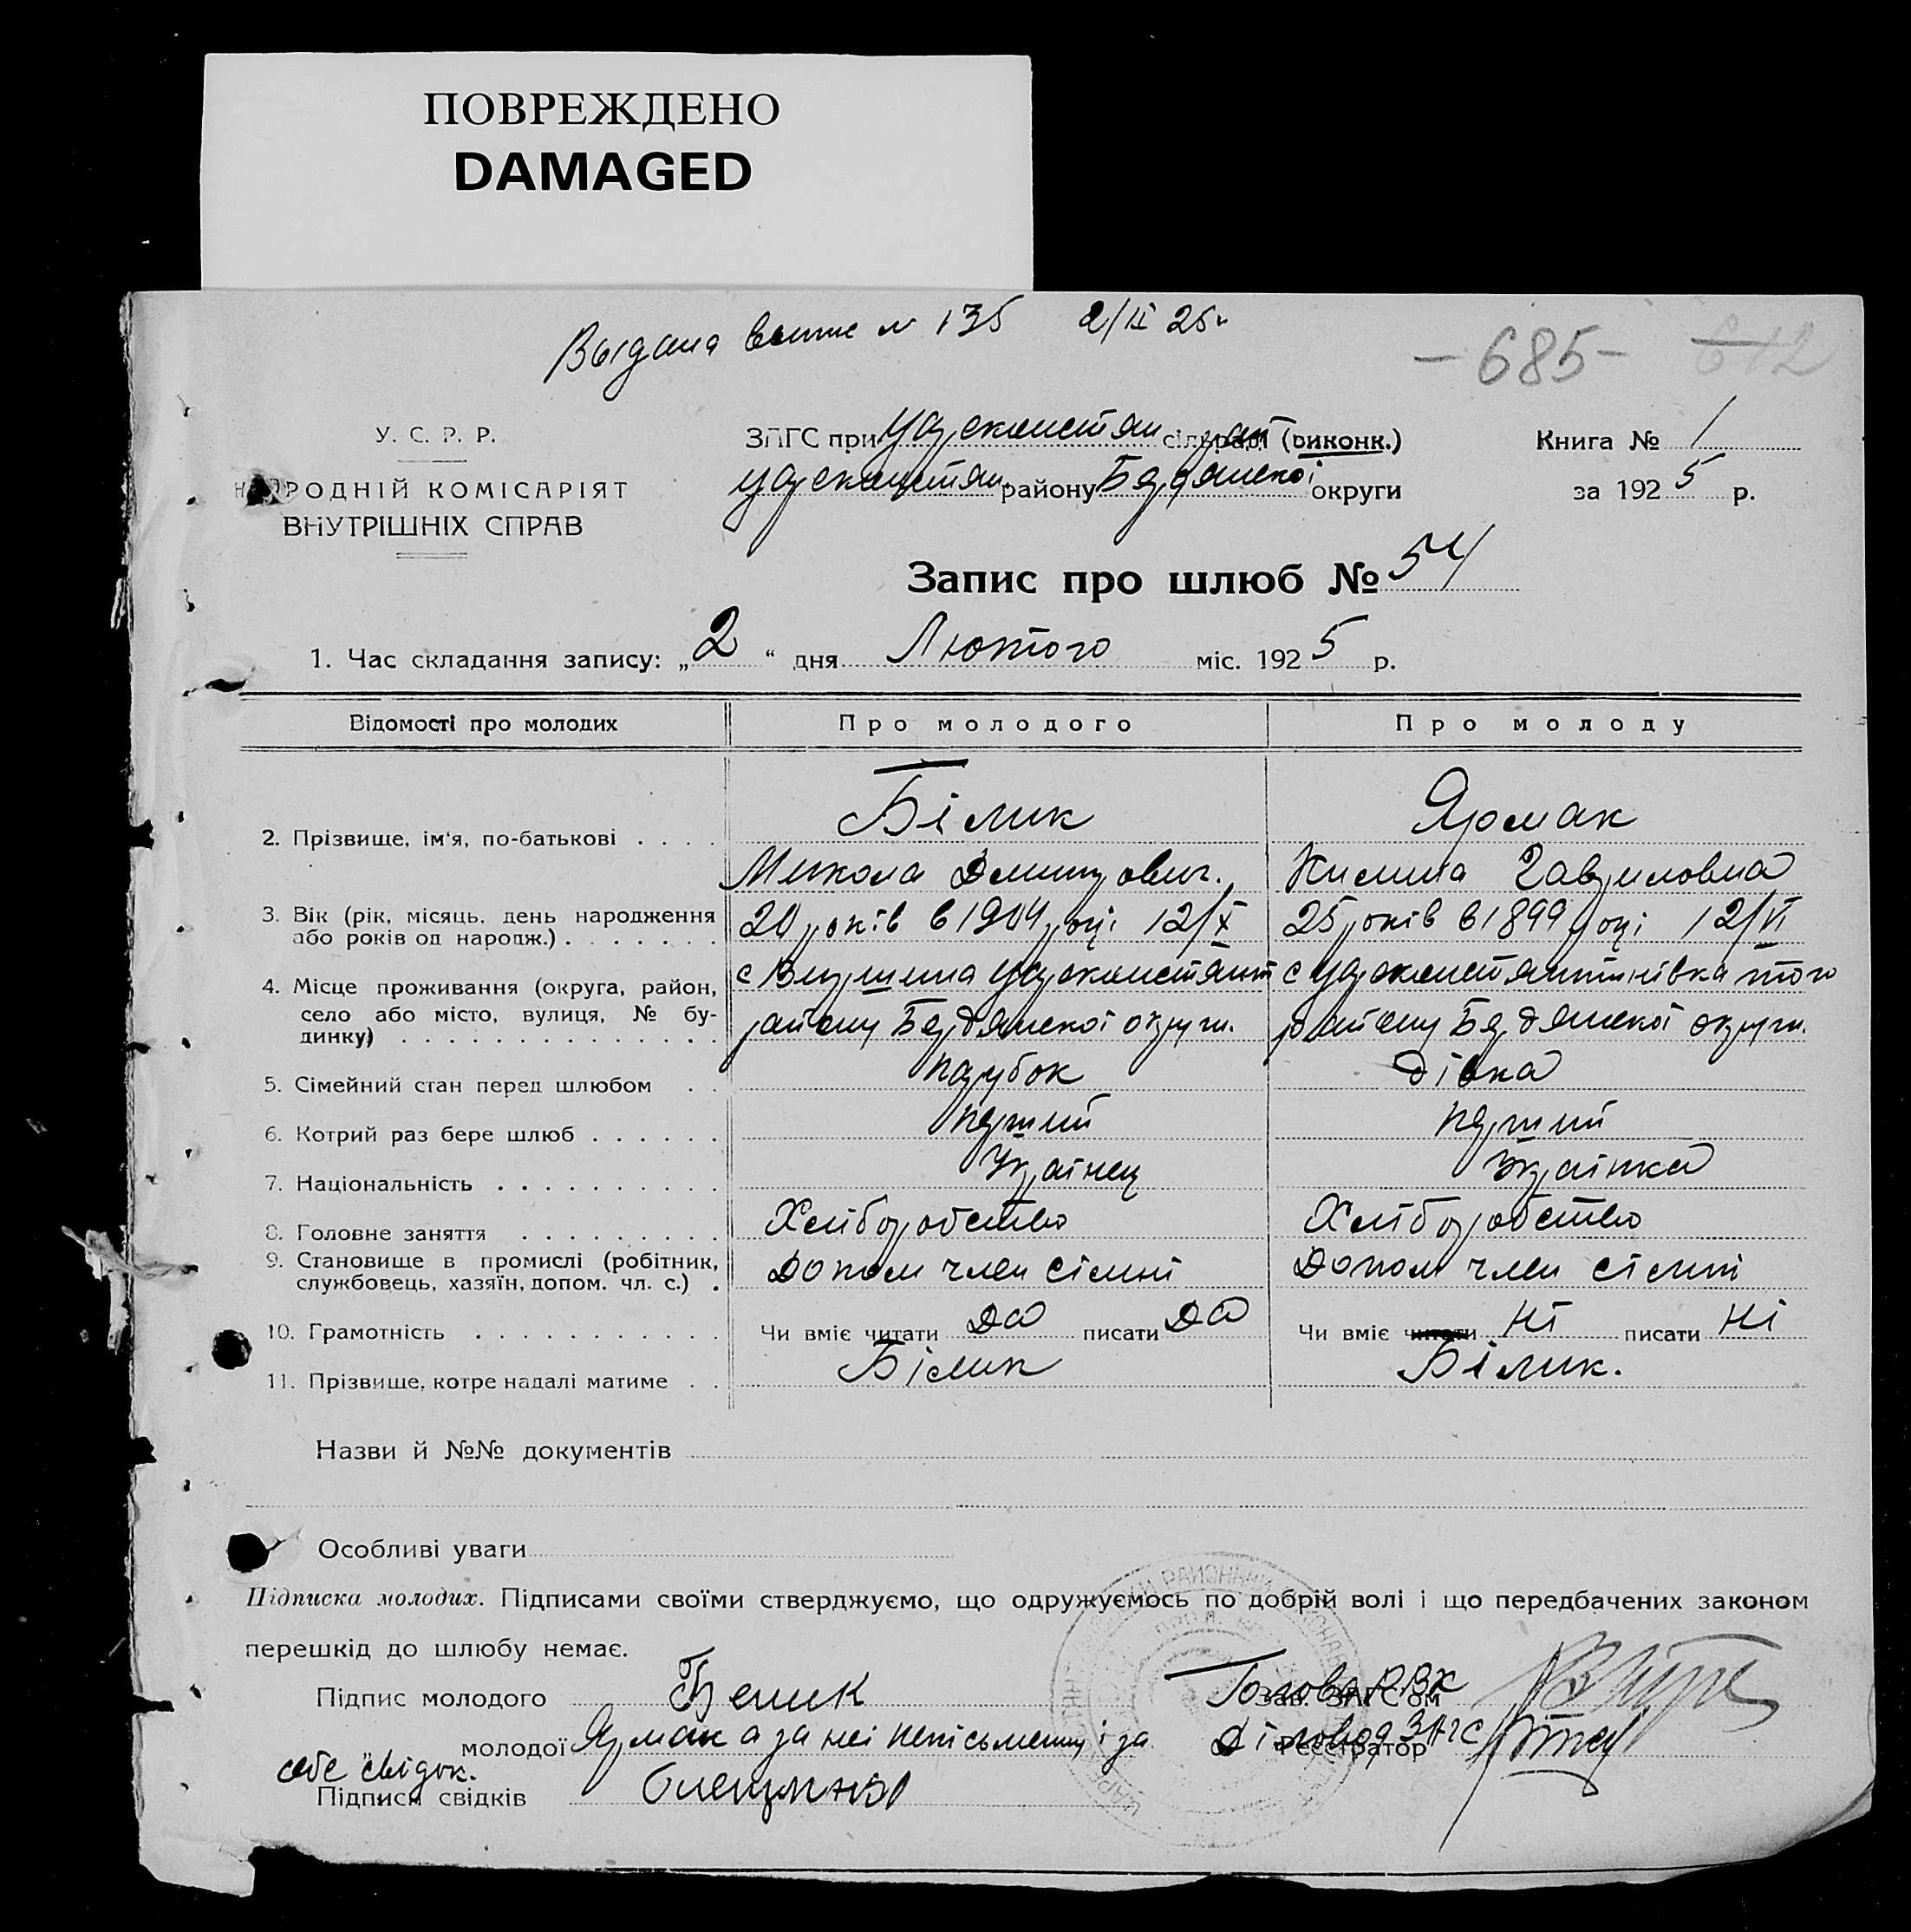 ПОВРЕЖДЕНО
DAMAGED
Выдана № 135 2/II 25г
- 685 - 612
У. С. Р. Р.
НАРОДНІЙ КОМІСАРІЯТ
ВНУТРІШНІХ СПРАВ
ЗПГС при Цареконстян сільраді (виконк.)
Цареконстян. району Бердянської округи
Книга № 1
за 1925 р.
Запис про шлюб № 54
1. Час складання запису: „2“ дня Лютого міс. 1925 р.
Відомості про молодих Про молодого Про молоду
2. Прізвище, ім'я, по-батькові . . . . Білик Ярмак
Микола Дмитрович. Килина Гавриловна
3. Вік (рік, місяць, день народження або років од народж.) . . . . . . . 20 років в 1904 році 12/X 25 років в 1899 році 12/VI
4. Місце проживання (округа, район, село або місто, вулиця, № будинку) . . . . . . . . . . . . . .
с Вершина Цареконстянт с Цареконстянтинівка того
району Бердянської округи. району Бердянської округи.
5. Сімейний стан перед шлюбом . . парубок дівка
6. Котрий раз бере шлюб . . . . . . перший перший
7. Національність . . . . . . . . . . Українец Українка
8. Головне заняття . . . . . . . . . Хліборобство Хліборобство
9. Становище в промислі (робітник, службовець, хазяїн, допом. чл. с.) . Допом член сімні Допом член сімні
10. Грамотність . . . . . . . . . . . Чи вміє читати да писати да Чи вміє читати ні писати ні
11. Прізвище, котре надалі матиме . . Білик Білик.
Назви й №№ документів
Особливі уваги
Підписка молодих. Підписами своїми стверджуємо, що одружуємось по добрій волі і що передбачених законом
перешкід до шлюбу немає.
Підпис молодого Белик Голова РВК Зав. ЗАГСом
молодої Ярмак а за неі неписьменну і за Діловод ЗАГС Реєстратор
себе свідок.
Підписи свідків